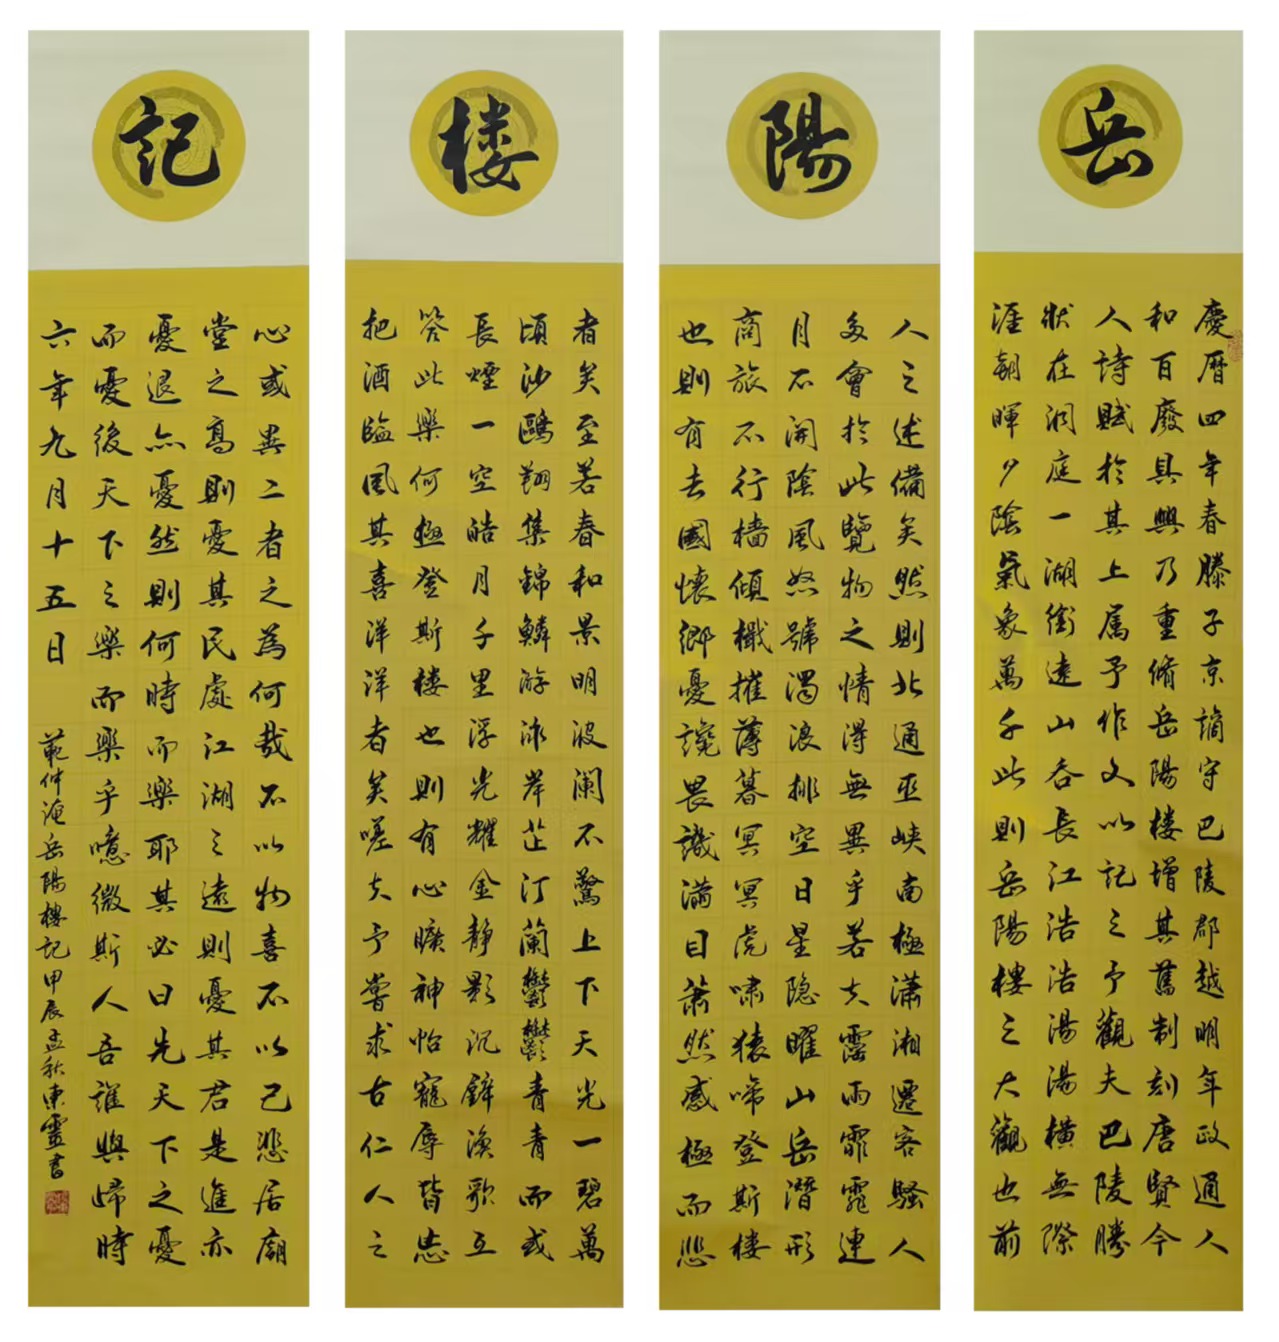 岳
慶曆四年春滕子京謫守巴陵郡越明年政通人
和百廢具興乃重脩岳陽楼增其舊制刻唐賢今
人詩賦於其上属予作文以記之予觀夫巴陵勝
狀在洞庭一湖銜遠山吞長江浩浩湯湯橫無際
涯朝暉夕陰氣象萬千此則岳陽樓之大觀也前
陽
人之述備矣然則北通巫峽南極瀟湘遷客騷人
多會於此覽物之情得無異乎若夫霪雨霏霏連
月不開陰風怒號濁浪排空日星隐曜山岳潛形
商旅不行檣傾檝摧薄暮冥冥虎嘯猿啼登斯楼
也則有去國懷鄉憂讒畏譏滿目蕭然感極而悲
楼
者矣至若春和景明波澜不驚上下天光一碧萬
頃沙鷗翔集錦鱗游泳岸芷汀蘭鬱鬱青青而或
長煙一空皓月千里浮光耀金静影沉璧漁歌互
答此樂何極登斯楼也則有心曠神怡寵辱皆忘
把酒臨風其喜洋洋者矣嗟夫予嘗求古仁人之
記
心或異二者之為何哉不以物喜不以己悲居廟
堂之高則憂其民處江湖之遠則憂其君是進亦
憂退亦憂然則何時而樂耶其必曰先天下之憂
而憂後天下之樂而樂乎噫微斯人吾誰與歸時
六年九月十五日
範仲淹岳陽樓記甲辰孟秋東靈書